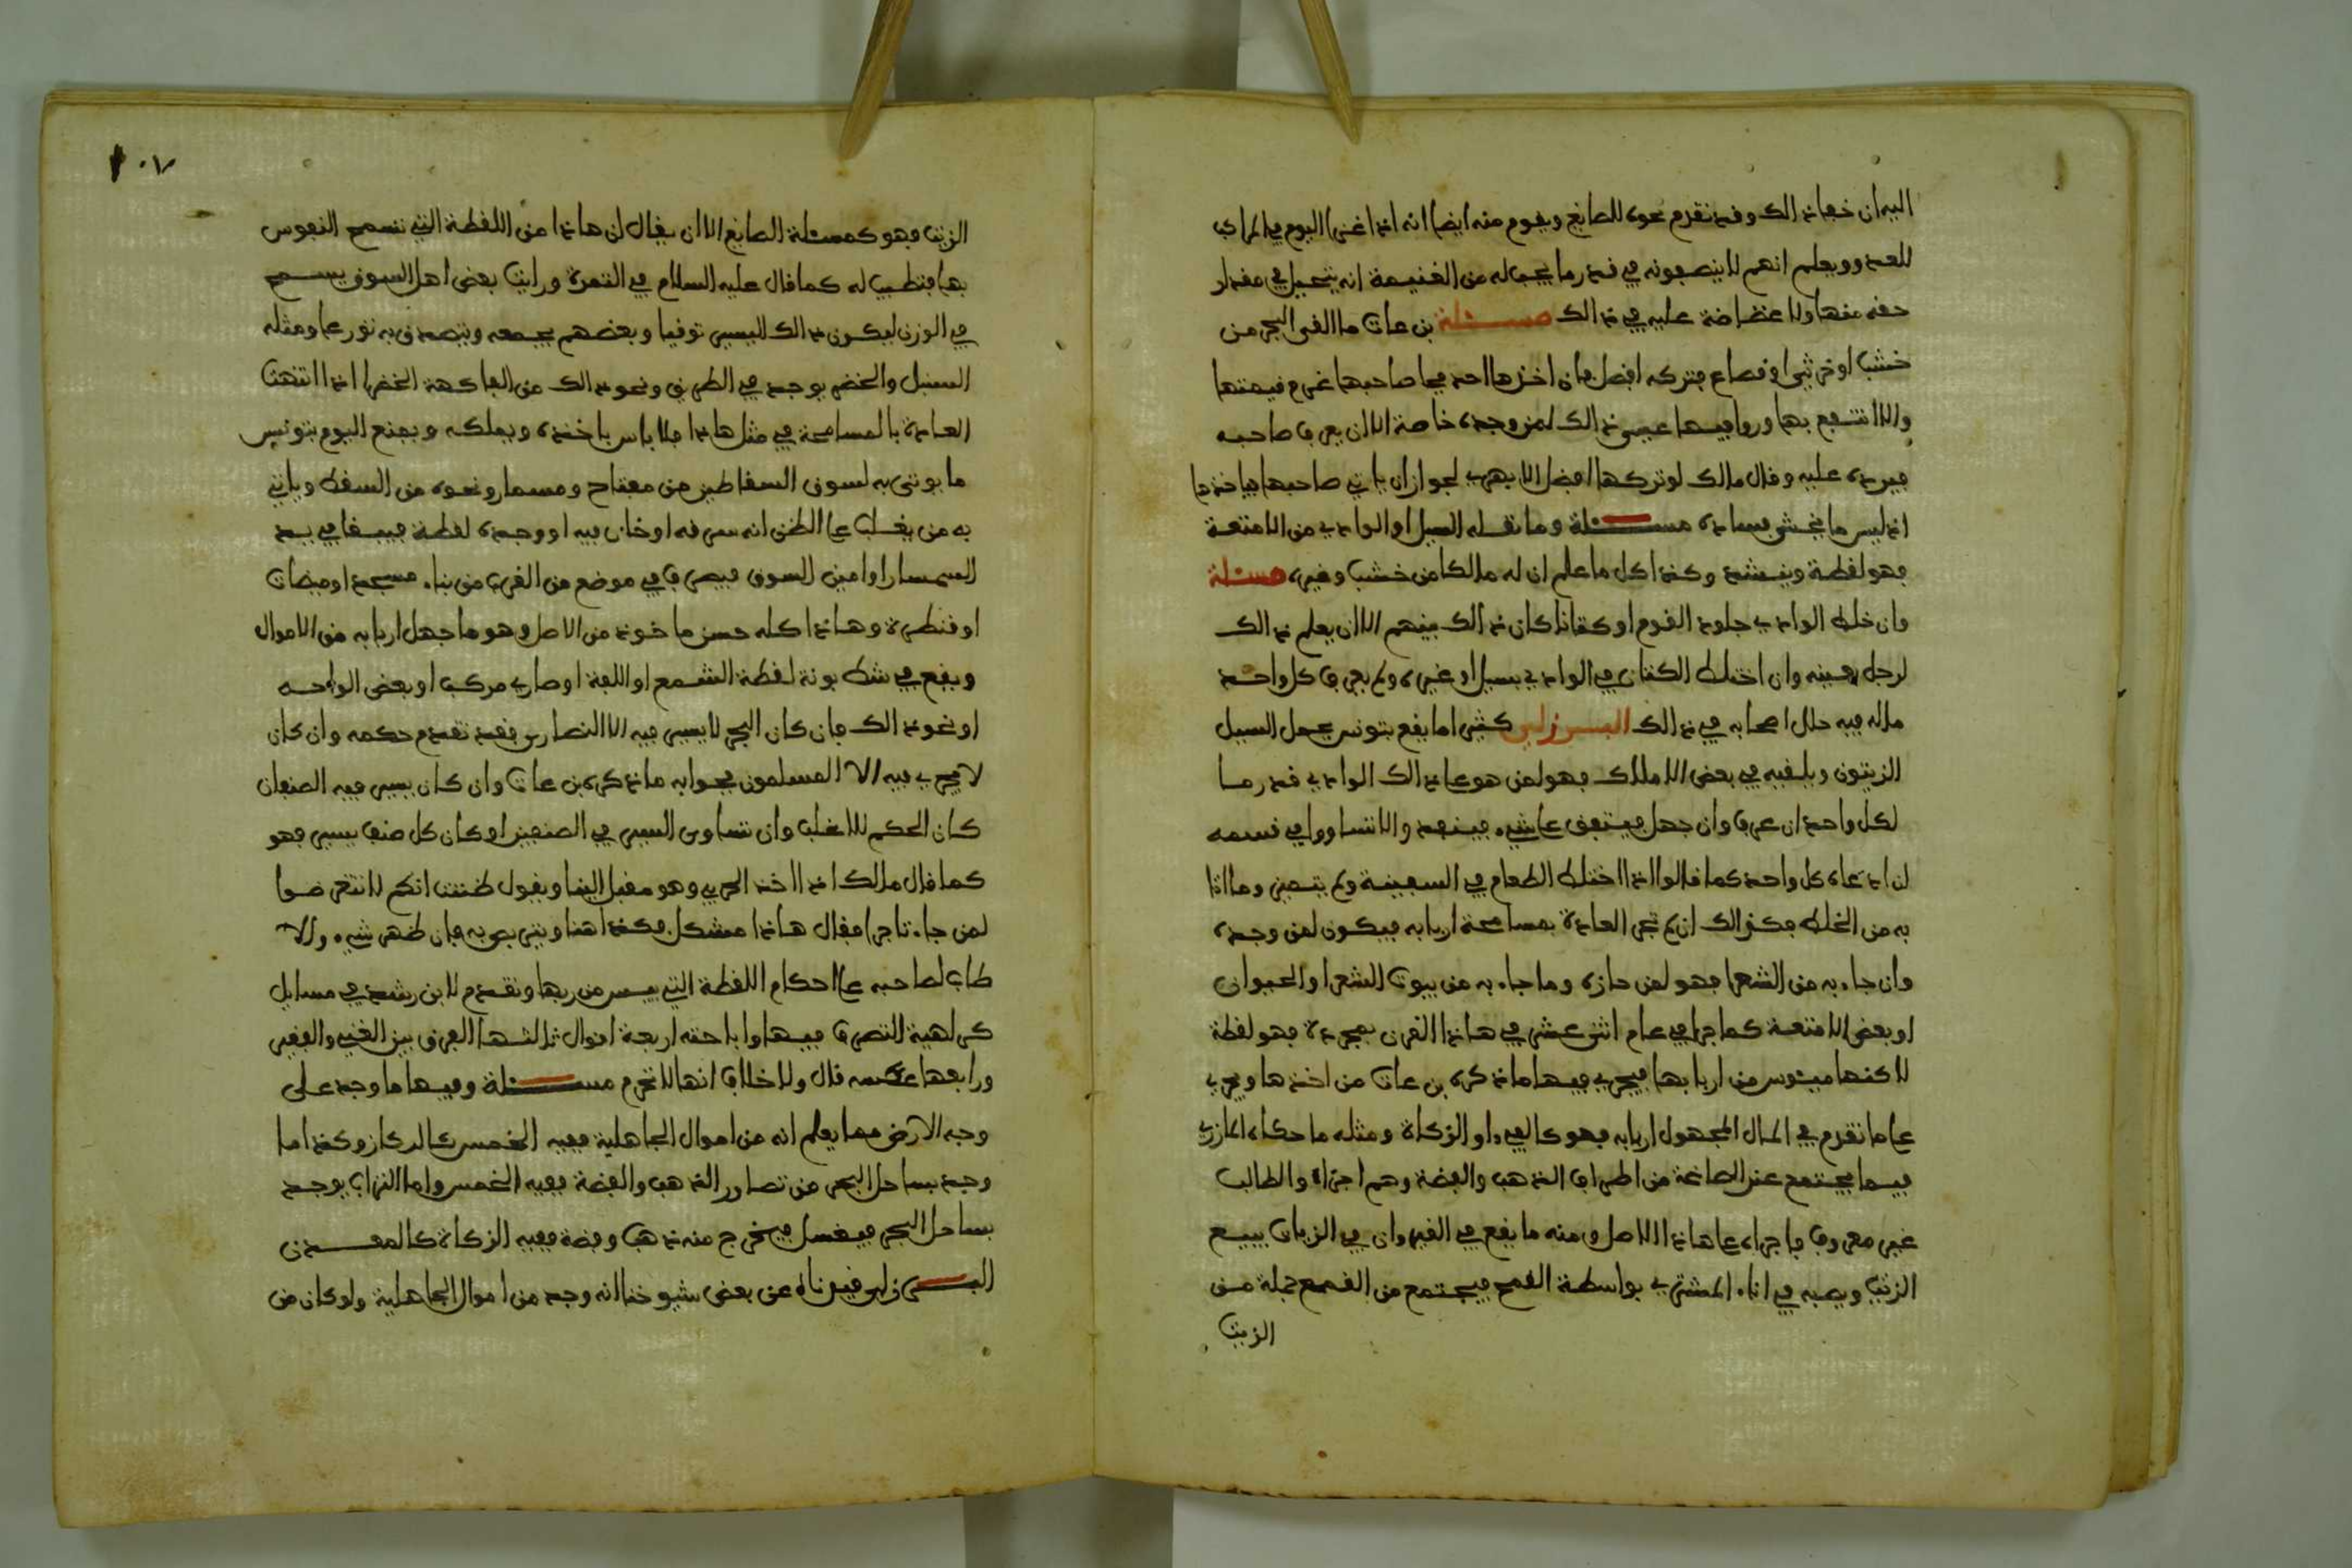 اليه ان خفا ذالك وقد تقدم نحوه للصايغ ويقوم منه ايضا انه اذا غنم اليوم في
للعدو ويعلم انهم لا ينصفونه في قدر ما يجب له من الغنيمة انه يتحيل في مقدار
حقه منها ولا غضاضة عليه في ذالك مسئلة بن عات ما القى البحر من
خشب او فصاع فتركه افضل فان اخذها احد فجا صاحبها غرم قيمتها
والا انتفع بها وروا فيها عيسى ذالك لمن وجده خاصة الا ان يعرف صاحبه
فيرده عليه وقال مالك لو تركها افضل الا بقرب لجواز ان ياتي صاحبها فياخذها
اذ ليس ما يخشى فساده مسئلة وما نقله السيل او الوادي من الامتعة
فهو لقطة وينشد وكذا كل ما علم ان له مالكا من خشب وغيره مسئلة
وان خلط الوادي جلود القوم او كتانا كان ذالك بينهم الا ان يعلم ذالك
لرجل بعينه وان اختلط الكتان في الوادي بسيل او غيره ولم يعرف كل واحد
ماله فيه حلل اصحابه في ذالك البرزلي كثيرا ما يقع بتونس يحمل السيل
الزيتون ويلقيه في بعض الاملاك فهو لمن هو على ذالك الوادي قدر ما
لكل واحد ان عرف وان جهل فيتفق على شيء فينفد والا تساووا في قسمه
لن ادعاه كل واحد كما قالوا اذا اختلط الطعام في السفينة ولم يتعين وما اتا
به من الخلط فكذالك ان لم تجر العادة بمسامحة اربابه فيكون لمن وجده
وان جاء به من الشعرا فهو لمن حازه وما جاء به من بيوت الشعرا والحيوان
او بعض الامتعة كما جرا في عام اثنى عشر في هاذا القرن بمجردة فهو لقطة
لاكنها ميئوس من اربابها فيجري فيها ما ذكره بن عات من اخذها ويجري
على ما تقدم في المال المجهول اربابه فهو كالفيء او الزكاة ومثله ما حكاه المازري
فيما يجتمع عند الصاغة من اطراف الذهب والفضة وهم اجراء والطالب
غير معروف فاجراه على هاذا الاصل ومنه ما يقع في القيروان في الزيات يبيع
الزيت ويصبه في اناء المشتري بواسطة القمع فيجتمع من القمع جملة من
الزيت
١٠٧
الزيت فهو كمسئلة الصايغ الا ان يقال ان هاذا من اللقطة التي تسمح النفوس
بها فتطيب له كما قال عليه السلام في التمرة ورايت بعض اهل السوق يسمح
في الوزن ليكون ذالك اليسير توقيا وبعضهم يجمعه ويتصدق به تورعا ومثله
السنبل والخضر يوجد في الطريق ونحو ذالك من الفاكهة الخضرا اذا انتهت
العادة بالمسامحة في مثل هاذا فلا باس باخذه وبملكه ويقع اليوم بتونس
ما يوتى به لسوق السقاطين من مفتاح ومسمار ونحوه من السقط وياتي
به من يغلب على الظن انه سرقه او خان فيه او وجده لقطة فيبقا في يد
السمسار او امين السوق فيصرف في موضع من القرب من بناء مسجد او ميضات
او قنطرة وهاذا كله حسن ماخوذ من الاصل وهو ما جهل اربابه من الاموال
ويقع في شط بونة لقطة الشمع او اللفة او صاري مركب او بعض الواحه
او نحو ذالك فان كان البحر لا يسير فيه الا النصارى فقد تقدم حكمه وان كان
لا يجري فيه الا المسلمون فجوابه ما ذكره بن عات وان كان يسير فيه الصنفان
كان الحكم للاغلب وان تساوى السير في الصنفين او كان كل صنف يسير فهو
كما قال مالك اذا اخذ الحربي وهو مقبل الينا ويقول ظننت انكم لا تتعرضوا
لمن جاء تاجرا فقال هاذا مشكل فكذا هنا فان ظهر شيء والا
طاب لصاحبه على احكام اللقطة التي ييس من ربها وتقدم لابن رشد في مسايل
كراهية التصرف فيها واباحته اربعة اقوال ثالثها الفرق بين الغني والفقير
ورابعها عكسه قال ولا خلاف انها لا تحرم مسئلة وفيها ما وجد على
وجه الارض مما يعلم انه من اموال الجاهلية ففيه الخمس كالركاز وكذا ما
وجد بساحل البحر من تصاوير الذهب والفضة ففيه الخمس واما التراب يوجد
بساحل البحر فيغسل فيخرج منه ذهب وفضة ففيه الزكاة كالمعدن
البرزلي قيدناه عن بعض شيوخنا انه وجد من اموال الجاهلية ولو كان من